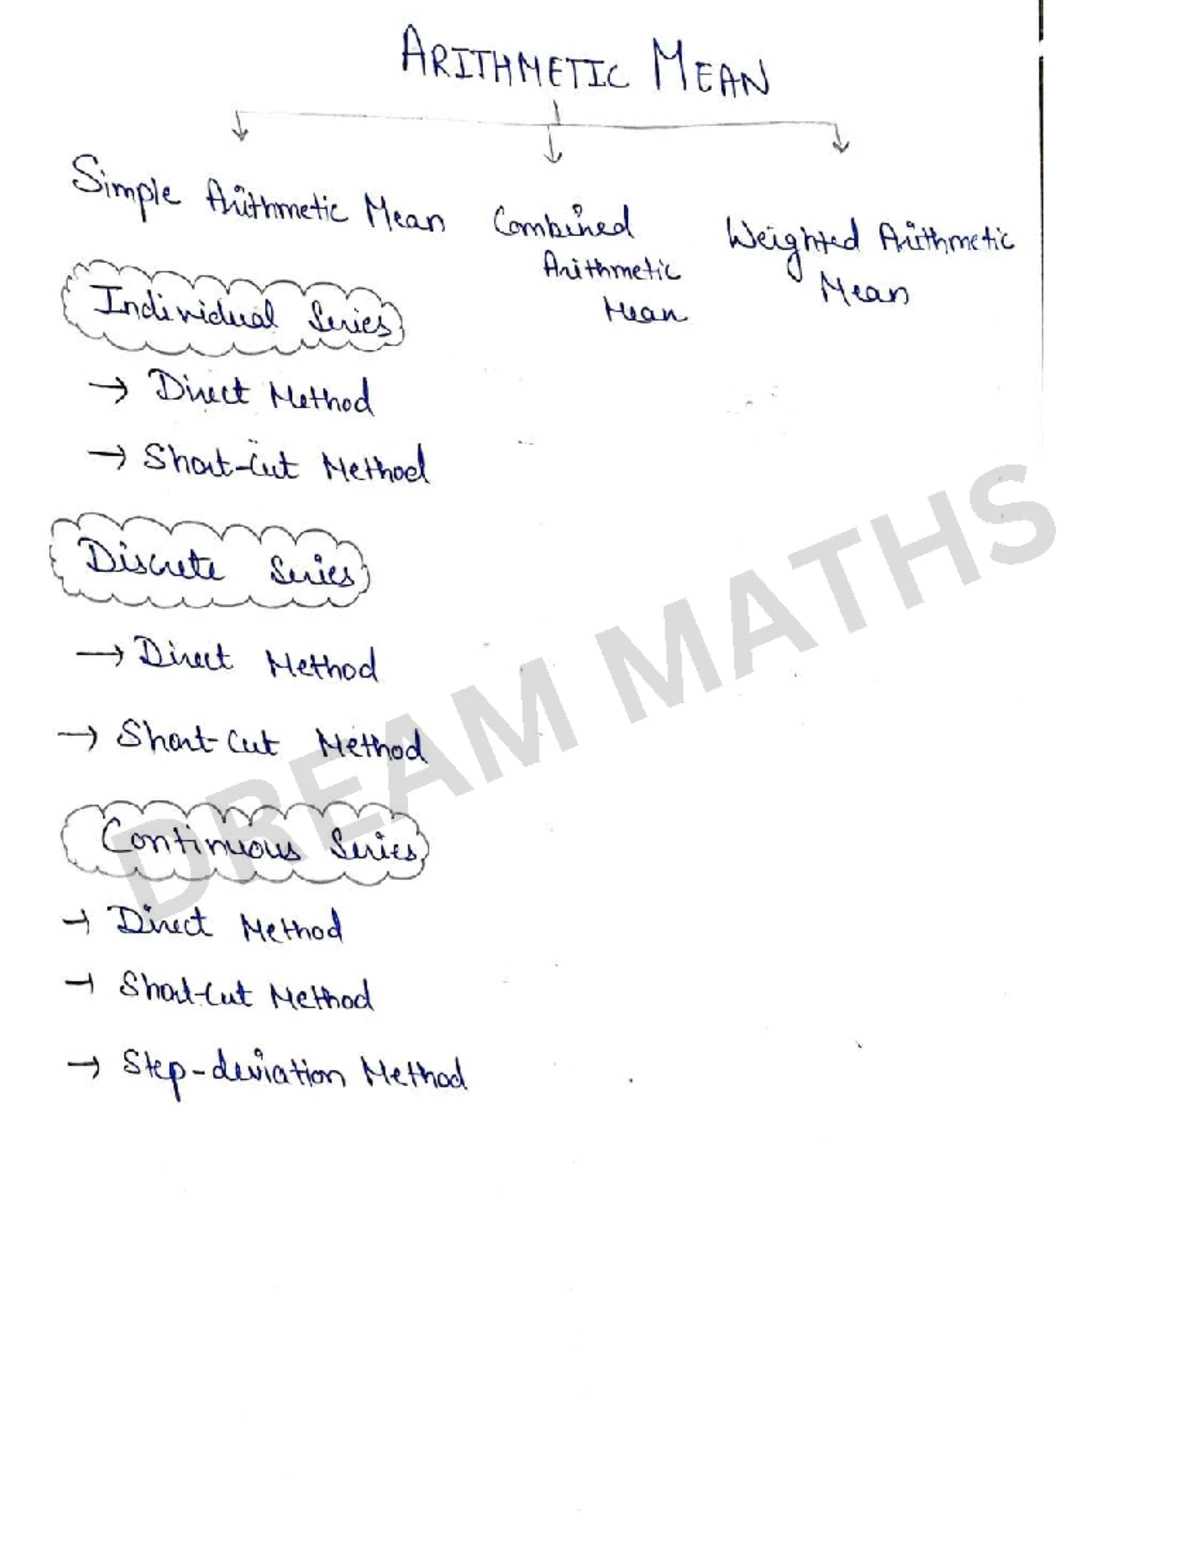 ARITHMETIC MEAN
Simple Arithmetic Mean
Combined
Arithmetic
Mean
Weighted Arithmetic
Mean
Individual Series
→ Direct Method
→ Short-Cut Method
Discrete Series
→ Direct Method
→ Short-Cut Method
Continuous Series
→ Direct Method
→ Short-Cut Method
→ Step-deviation Method
DREAM MATHS